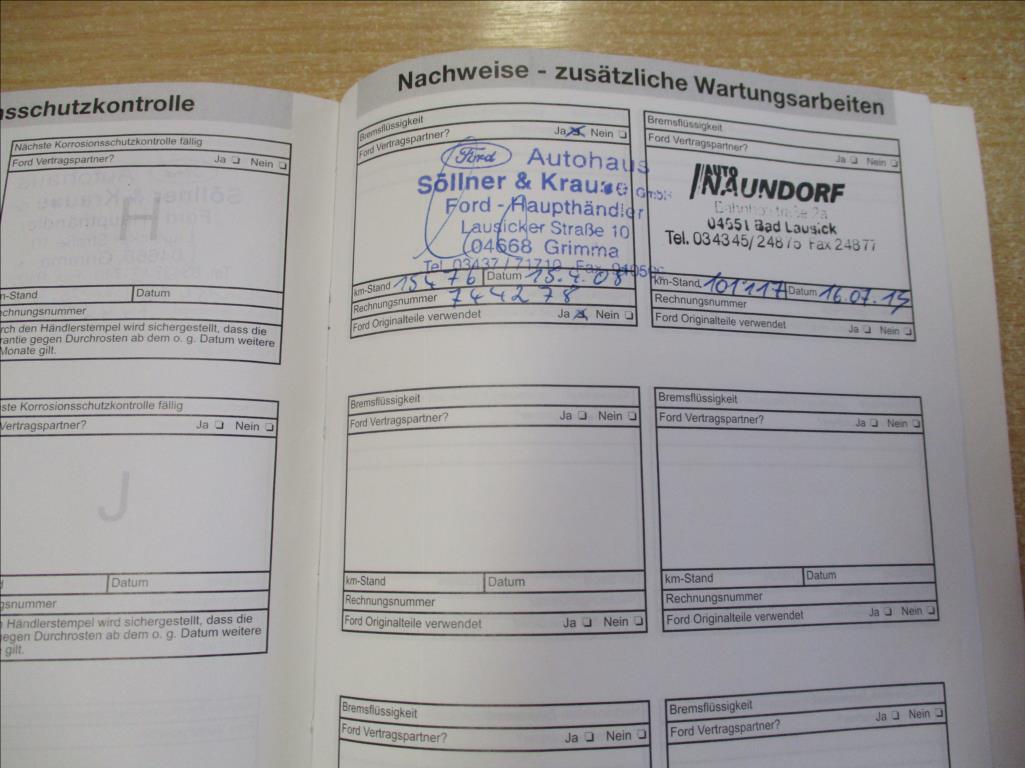 nsschutzkontrolle
Nächste Korrosionsschutzkontrolle fällig
Ford Vertragspartner? Ja ❏ Nein ❏
H
km-Stand Datum
chnungsnummer
rch den Händlerstempel wird sichergestellt, dass die
rantie gegen Durchrosten ab dem o. g. Datum weitere
Monate gilt.
ste Korrosionsschutzkontrolle fällig
Vertragspartner? Ja ❏ Nein ❏
J
d Datum
gsnummer
Händlerstempel wird sichergestellt, dass die
egen Durchrosten ab dem o. g. Datum weitere
gilt.
Nachweise - zusätzliche Wartungsarbeiten
Bremsflüssigkeit
Ford Vertragspartner? Ja ☒ Nein ❏
Ford Autohaus
Söllner & Krause GmbH
Ford - Haupthändler
Lausicker Straße 10
04668 Grimma
Tel. 03437 / 71710 Fax
km-Stand 15476 Datum 15.4.08
Rechnungsnummer 744278
Ford Originalteile verwendet Ja ☒ Nein ❏
Bremsflüssigkeit
Ford Vertragspartner? Ja ❏ Nein ❏
AUTO
NAUNDORF
Bahnhofstraße 2a
04651 Bad Lausick
Tel. 034345/24875 Fax 24877
km-Stand 101'117 Datum 16.07.15
Rechnungsnummer
Ford Originalteile verwendet Ja ❏ Nein ❏
Bremsflüssigkeit
Ford Vertragspartner? Ja ❏ Nein ❏
km-Stand Datum
Rechnungsnummer
Ford Originalteile verwendet Ja ❏ Nein ❏
Bremsflüssigkeit
Ford Vertragspartner? Ja ❏ Nein ❏
km-Stand Datum
Rechnungsnummer
Ford Originalteile verwendet Ja ❏ Nein ❏
Bremsflüssigkeit
Ford Vertragspartner? Ja ❏ Nein ❏
Bremsflüssigkeit
Ford Vertragspartner? Ja ❏ Nein ❏